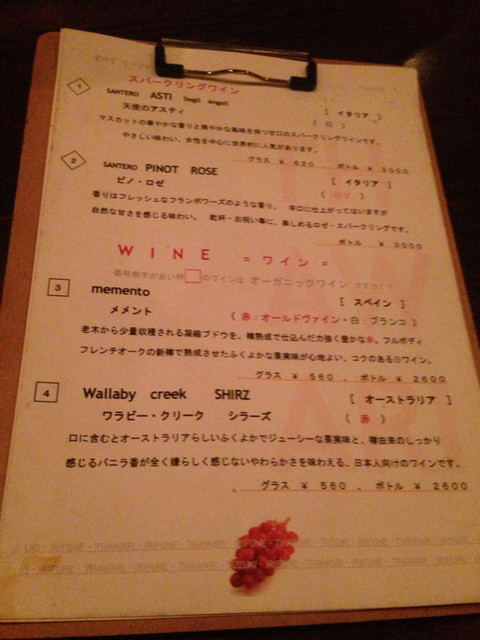 スパークリングワイン
1
SANTERO ASTI Degli Angeli [ イタリア ]
天使のアスティ ( 白 )
マスカットの華やかな香りと爽やかな風味を持つ甘口のスパークリングワインです。
やさしい味わい、女性を中心に世界的に人気があります。
グラス ¥ 620 、 ボトル ¥ 3000
2
SANTERO PINOT ROSE [ イタリア ]
ピノ・ロゼ ( ロゼ )
香りはフレッシュなフランボワーズのような香り。 辛口に仕上がってはいますが
自然な甘さを感じる味わい。 乾杯・お祝い事に、楽しめるロゼ・スパークリングです。
ボトル ¥ 3000
WINE = ワイン =
番号数字が赤い枠□のワインは オーガニックワイン
3
memento [ スペイン ]
メメント ( 赤：オールドヴァイン・白：ブランコ )
老木から少量収穫される凝縮ブドウを、樽熟成で仕込んだ力強く豊かな赤。フルボディ
フレンチオークの新樽で熟成させたふくよかな果実味が心地よい、コクのある白ワイン。
グラス ¥ 560 、 ボトル ¥ 2600
4
Wallaby creek SHIRZ [ オーストラリア ]
ワラビー・クリーク シラーズ ( 赤 )
口に含むとオーストラリアらしいふくよかでジューシーな果実味と、樽由来のしっかり
感じるバニラ香が全く嫌らしく感じないやわらかさを味わえる、日本人向けのワインです。
グラス ¥ 560 、 ボトル ¥ 2600